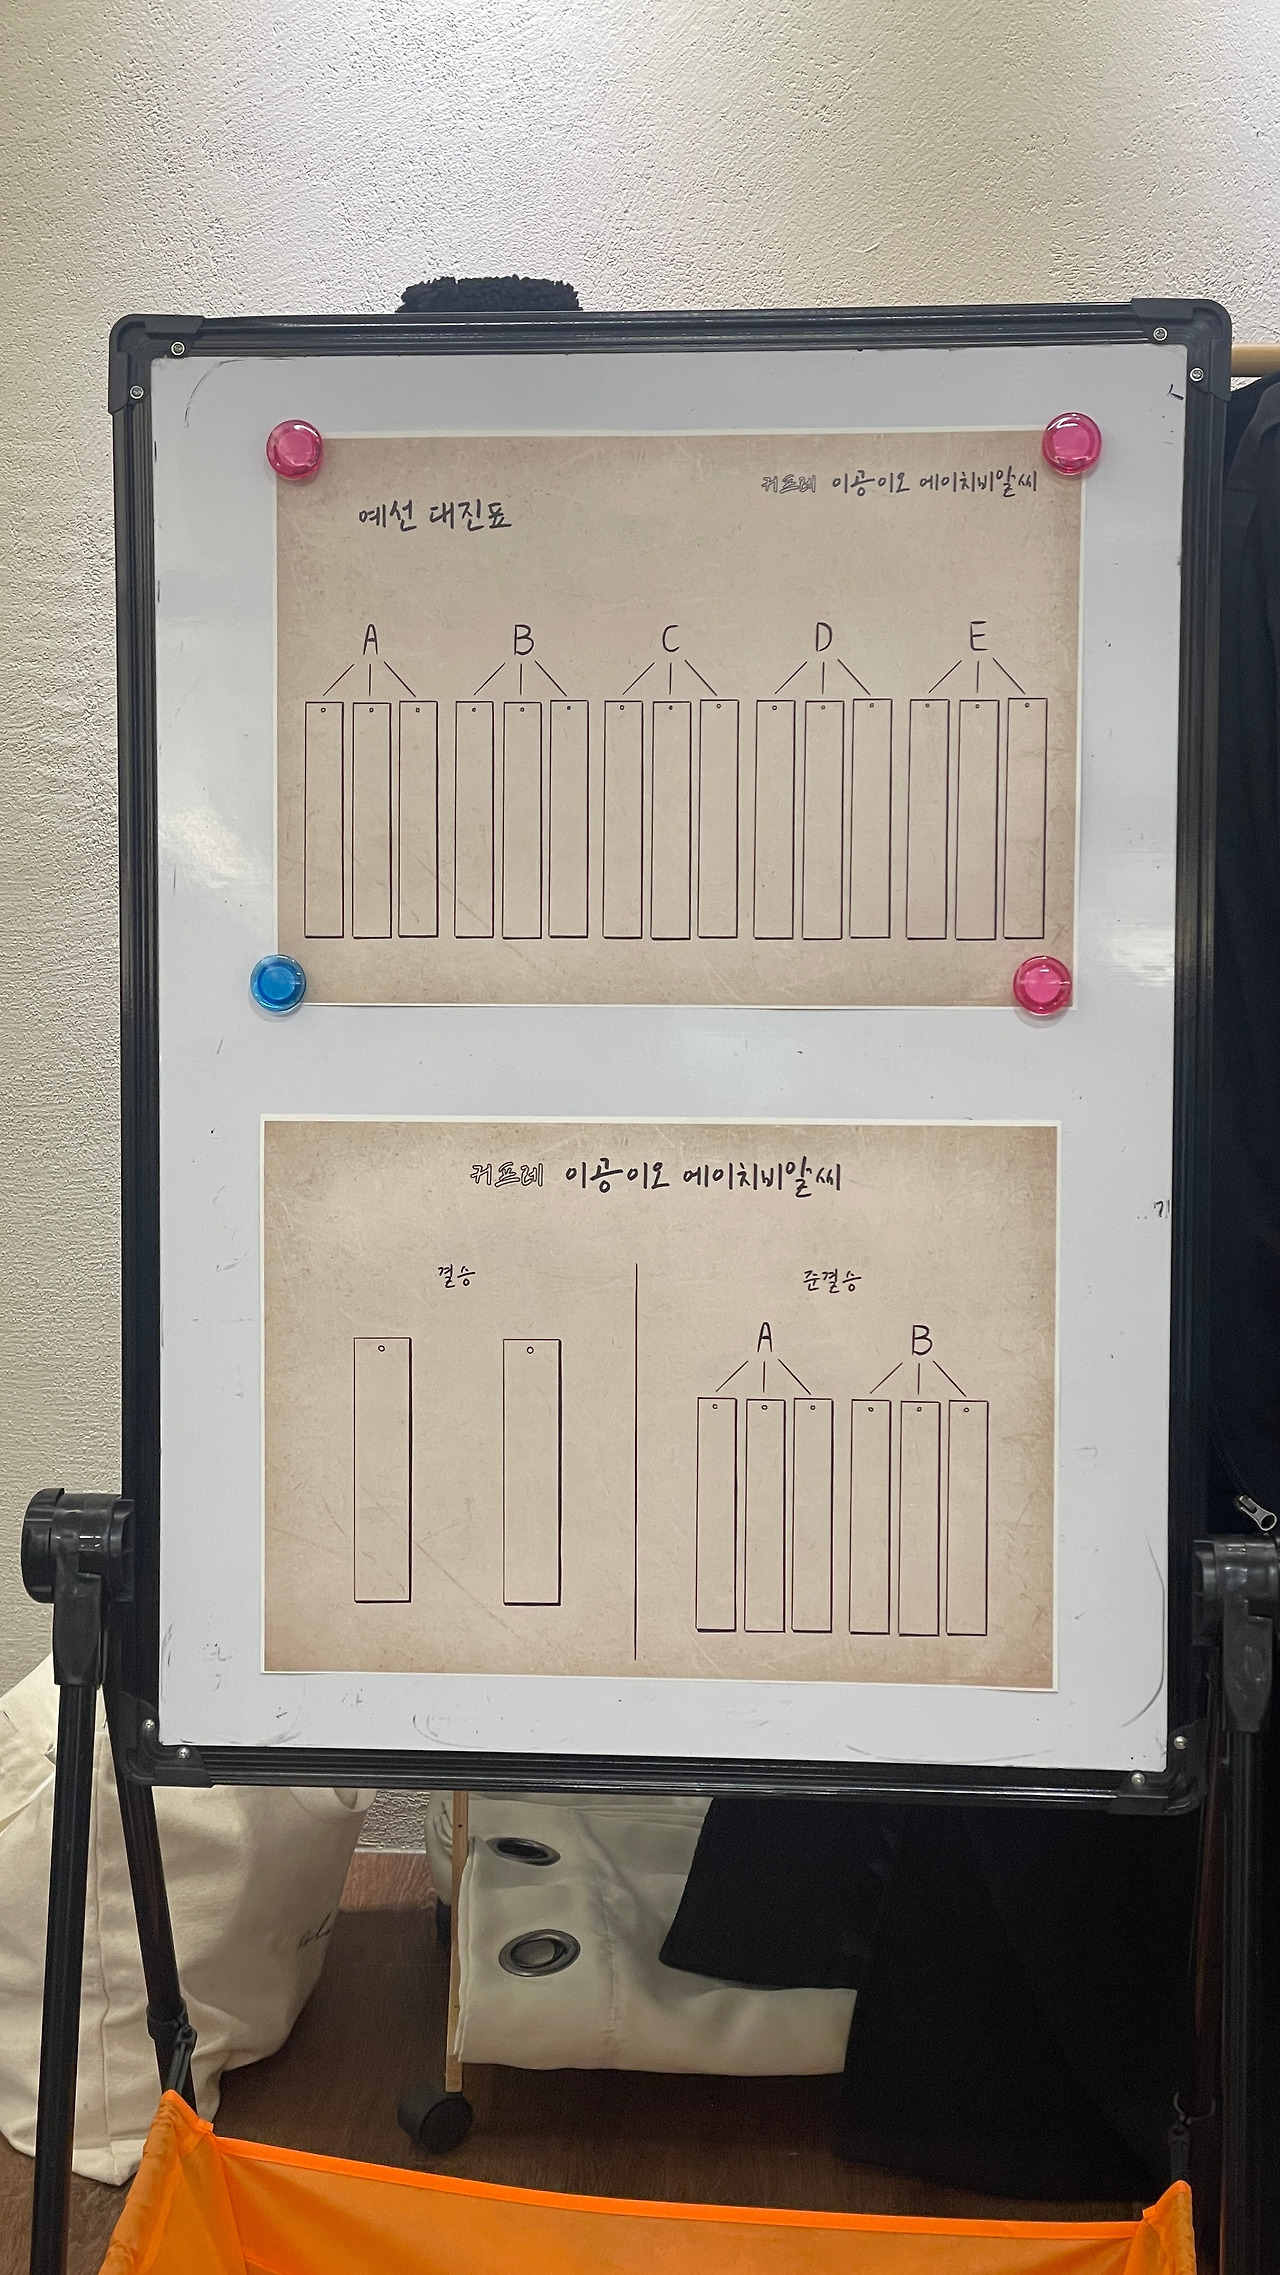 커프레 이공이오 에이치비알씨
예선 대진표
A B C D E
커프레 이공이오 에이치비알씨
결승
준결승
A B